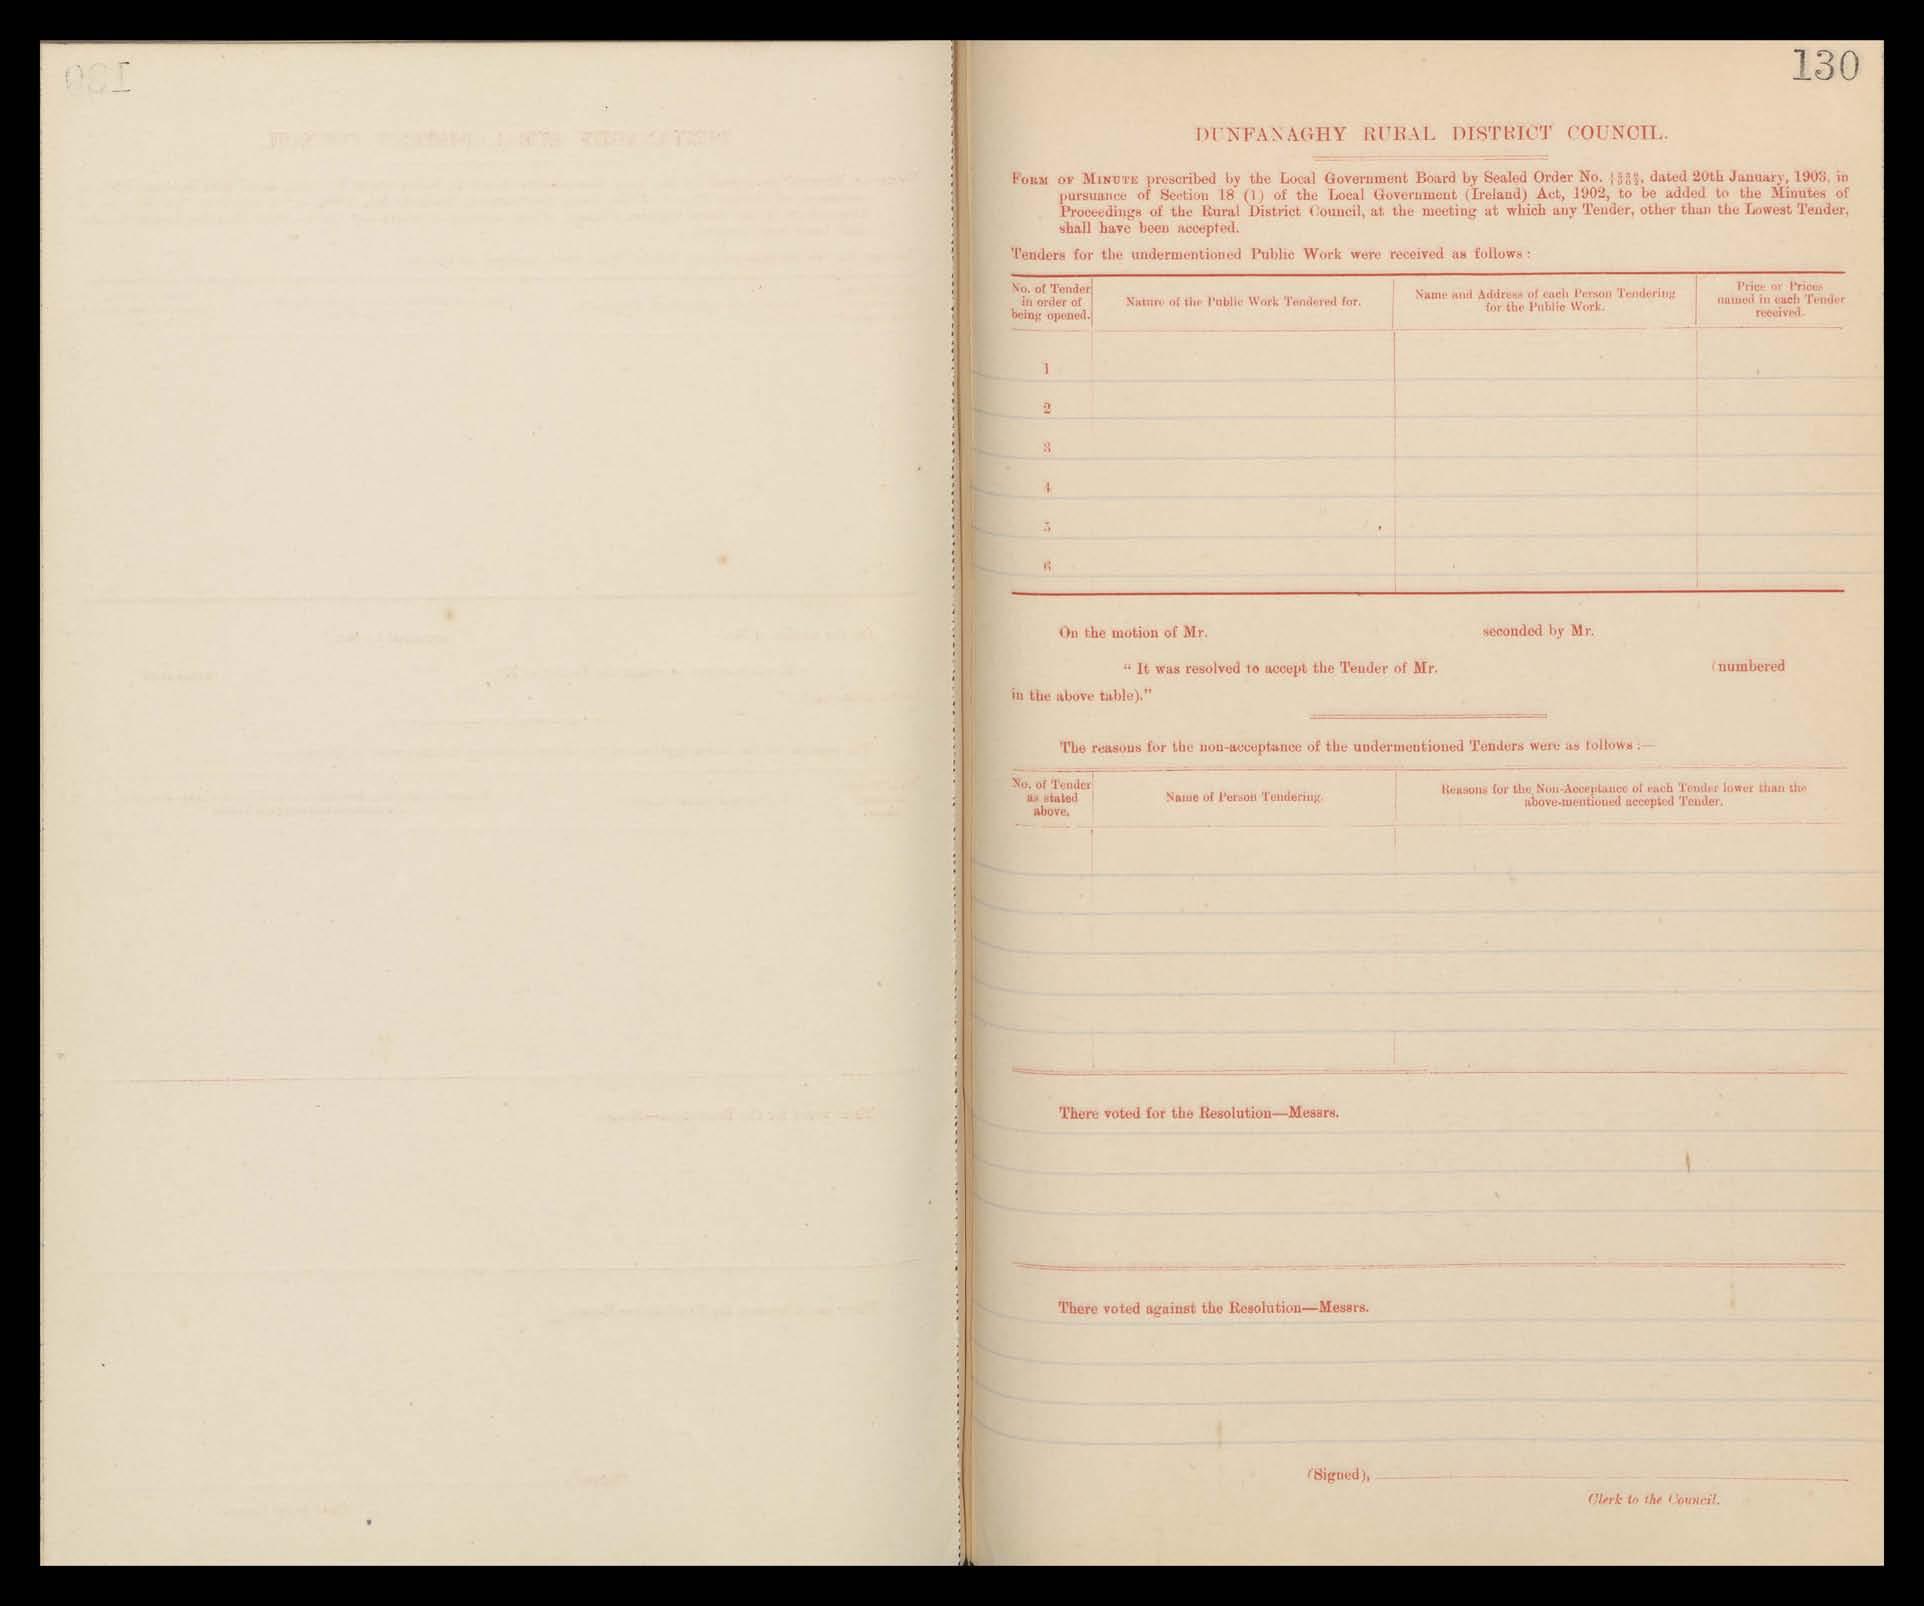 130
DUNFANAGHY RURAL DISTRICT COUNCIL.
FORM OF MINUTE prescribed by the Local Government Board by Sealed Order No. , dated 20th January, 1903, in
pursuance of Section 18 (1) of the Local Government (Ireland) Act, 1902, to be added to the Minutes of
Proceedings of the Rural District Council, at the meeting at which any Tender, other than the Lowest Tender,
shall have been accepted.
Tenders for the undermentioned Public Work were received as follows:
No. of Tender
in order of
being opened.
Nature of the Public Work Tendered for.
Name and Address of each Person Tendering
for the Public Work.
Price or Prices
named in each Tender
received.
1
2
3
4
5
6
On the motion of Mr. seconded by Mr.
"It was resolved to accept the Tender of Mr. (numbered
in the above table)."
The reasons for the non-acceptance of the undermentioned Tenders were as follows:—
No. of Tender
as stated
above.
Name of Person Tendering.
Reasons for the Non-Acceptance of each Tender lower than the
above-mentioned accepted Tender.
There voted for the Resolution—Messrs.
There voted against the Resolution—Messrs.
(Signed),
Clerk to the Council.